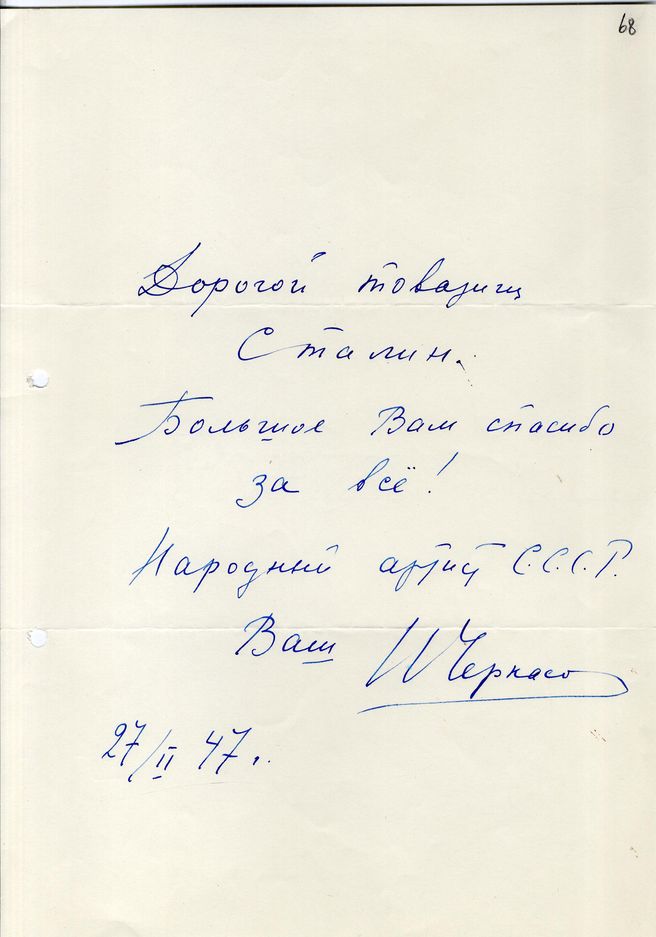 68
Дорогой товарищ
Сталин.
Большое Вам спасибо
за всё!
Народный артист С.С.С.Р.
Ваш Н Черкасов
27/II 47 г.